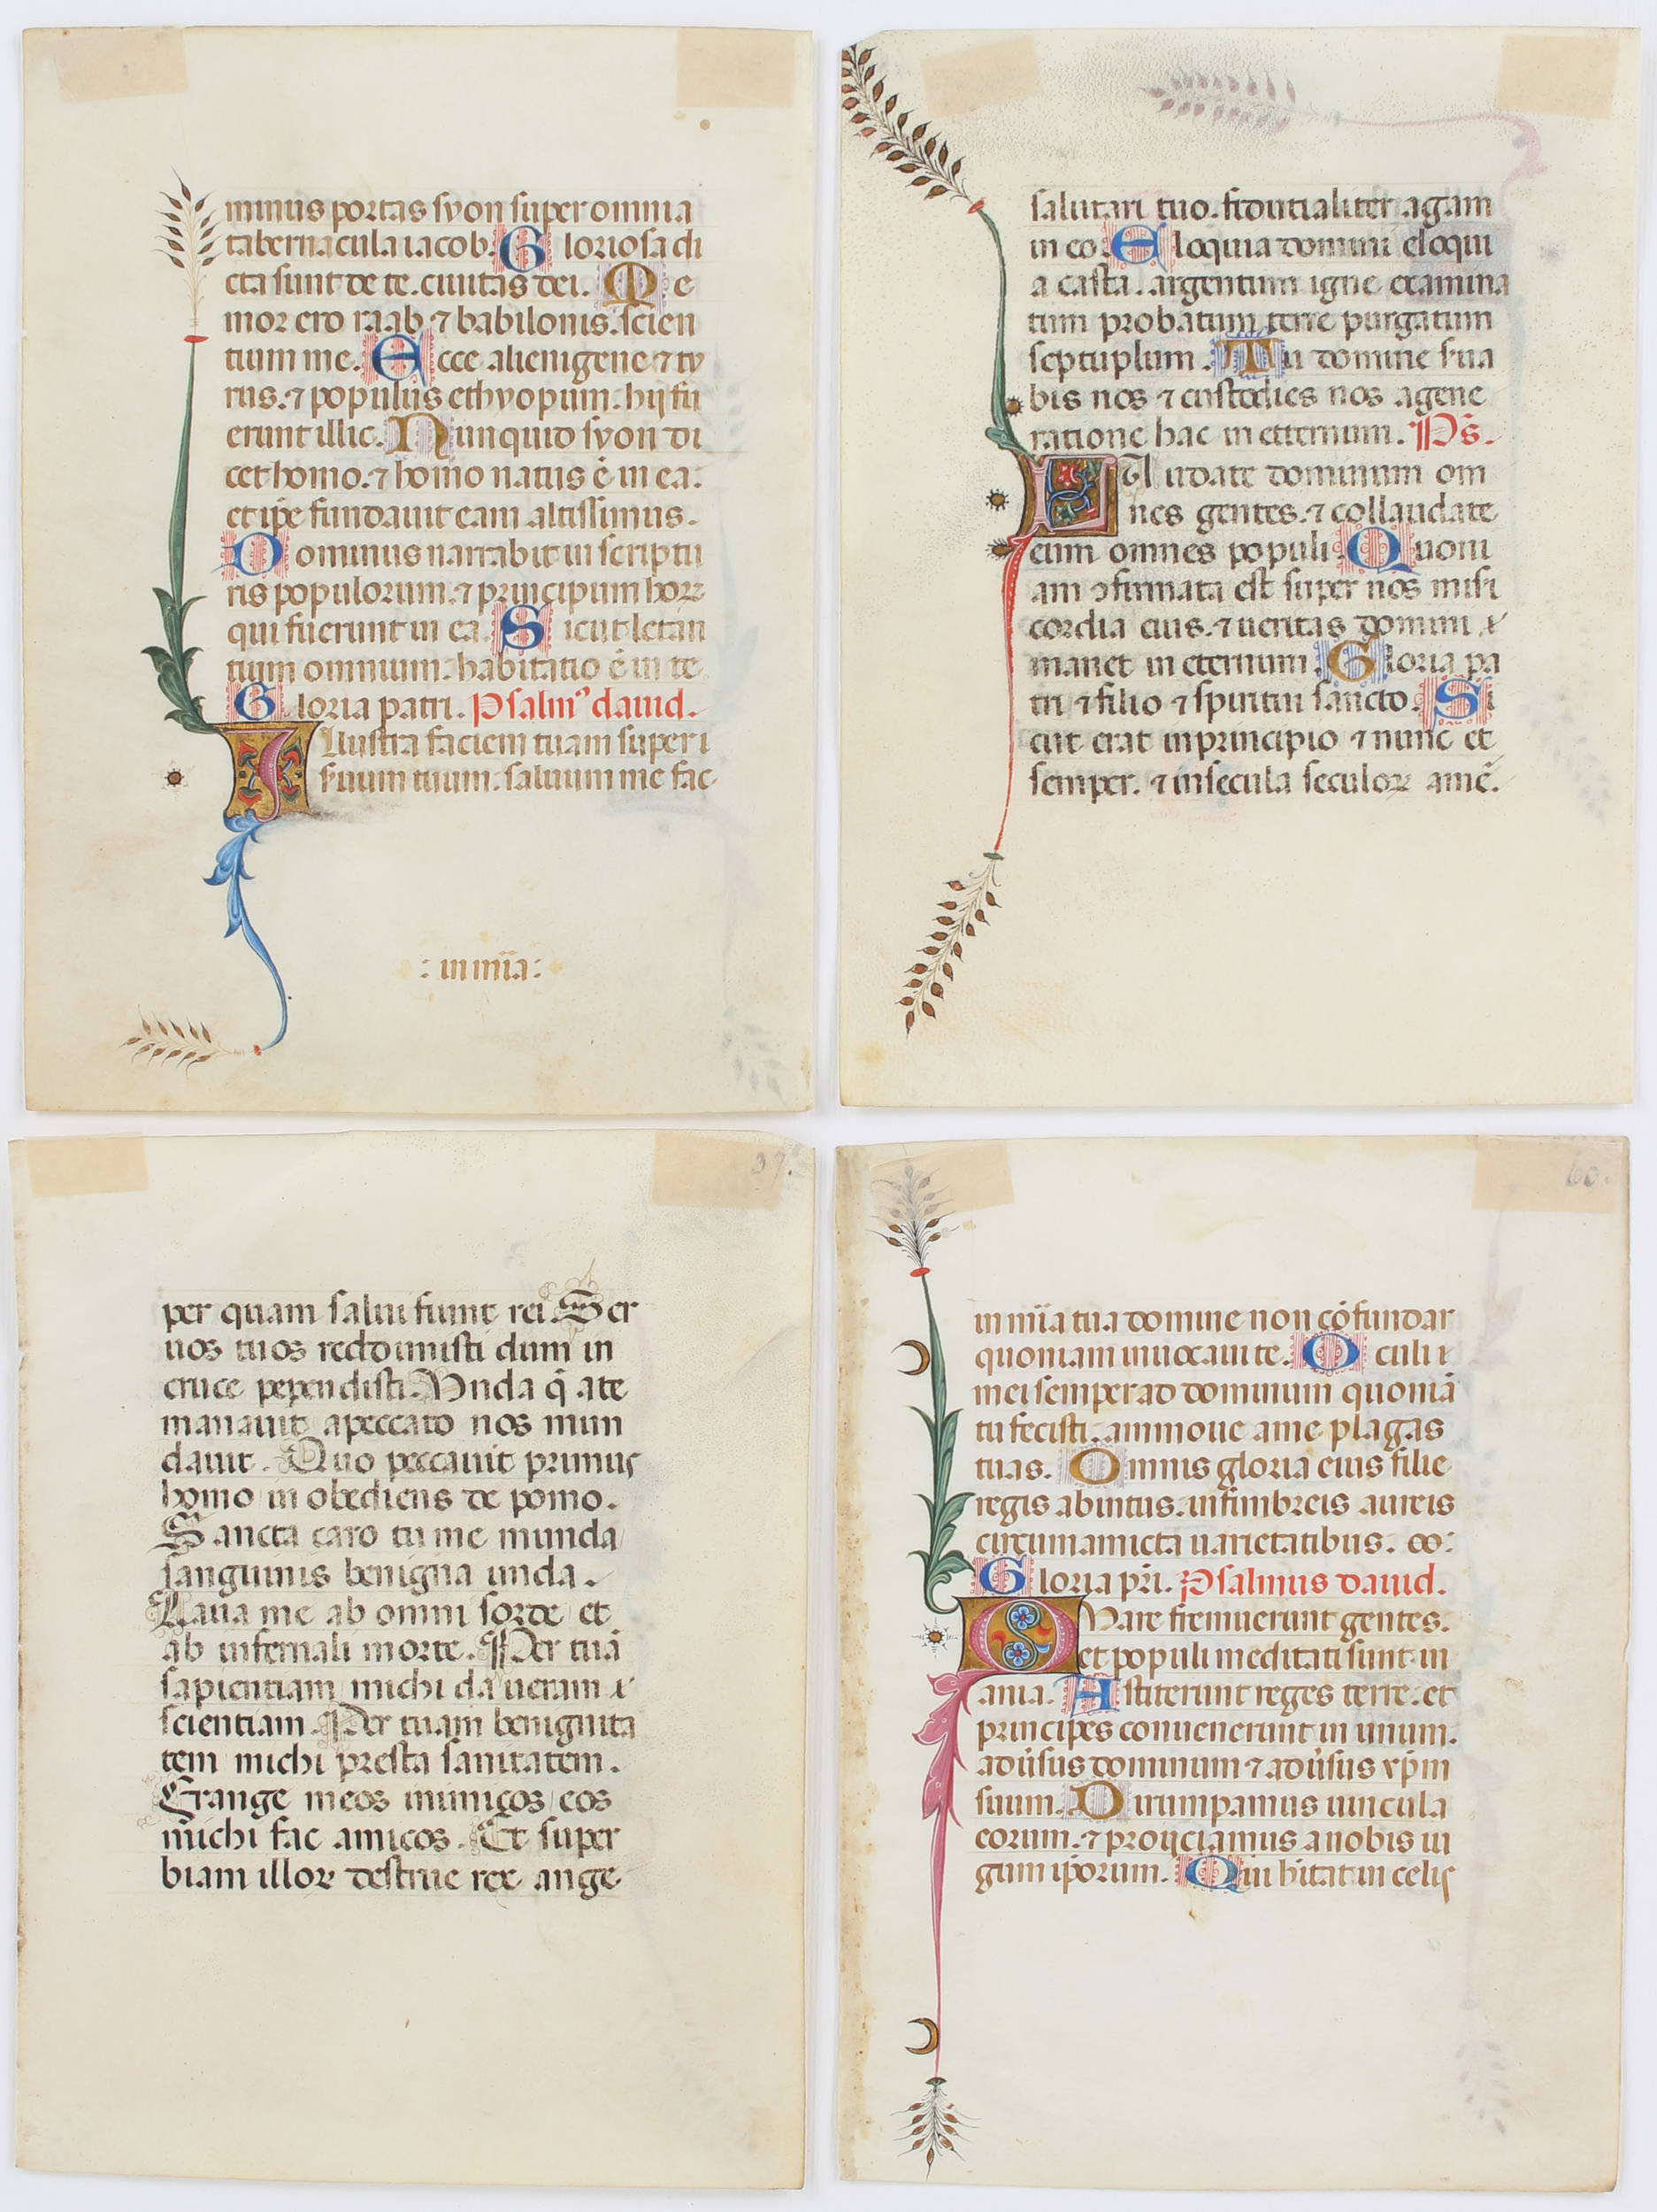 minus portas syon super omnia
tabernacula iacob. Gloriosa di
cta sunt de te. ciuitas dei. Me
mor ero raab ⁊ babilonis. scien
tium me. Ecce alienigene ⁊ ty
rus. ⁊ populus ethyopum. hij fu
erunt illic. Nunquid syon di
cet homo. ⁊ homo natus ē in ea:
et ip̄e fundauit eam altissimus.
Dominus narrabit in scriptu
ris populorum. ⁊ principum hoꝝ
qui fuerunt in ea. Sicut letan
tium omnium: habitatio ē in te
Gloria patri. Psalmꝰ dauid.
Illustra faciem tuam super
suum tuum. saluum me fac
: in mīa :
salutari tuo. agam
in eo. Eloquia domini eloqui
a casta. argentum igne examina
tum probatum terre purgatum
septuplum. Tu domine sua
bis nos ⁊ custodies nos agene
ratione hac in etternum. Ps̄.
Laudate dominum om
nes gentes. ⁊ collaudate
eum omnes populi. Quoni
am ɔfirmata est super nos misi
cordia eius. ⁊ ueritas domini
manet in eternum. Gloria pa
tri ⁊ filio ⁊ spiritui sancto. Si
cut erat inprincipio ⁊ nunc et
semper. ⁊ insecula seculoꝝ amē.
37.
per quam salui fiunt rei. Ser
uos tuos redomisti dum in
cruce pependisti. Vnda q̄ ate
manauit apeccato nos mun
dauit. Quo peccauit primus
homo in obediens de pomo.
Sancta caro tu me munda
sanguinis benigna unda.
Laua me ab omni sorde et
ab infernali morte. Per tuā
sapientiam michi da ueram
scientiam. Per tuam benignita
tem michi presta sanitatem.
Frange meos inimicos eos
michi fac amicos. Et super
biam illoꝝ destrue rex ange
60.
in mīa tua domine non cōfundar
quoniam inuocaui te. Oculi
mei semper ad dominum quoniā
tu fecisti. ammoue ame plagas
tuas. Omnis gloria eius filie
regis abintus. infimbreis aureis
circumamicta uarietatibus.
Gloria pr̄i. Psalmus dauid.
Quare fremuerunt gentes.
et populi meditati sunt in
ania. Astiterunt reges terre. et
principes conuenerunt in unum.
adūsus dominum ⁊ adūsus xp̄m
suum. Dirumpamus uincula
eorum. ⁊ proijciamus anobis iu
gum ip̄orum. Qui hitat in celis